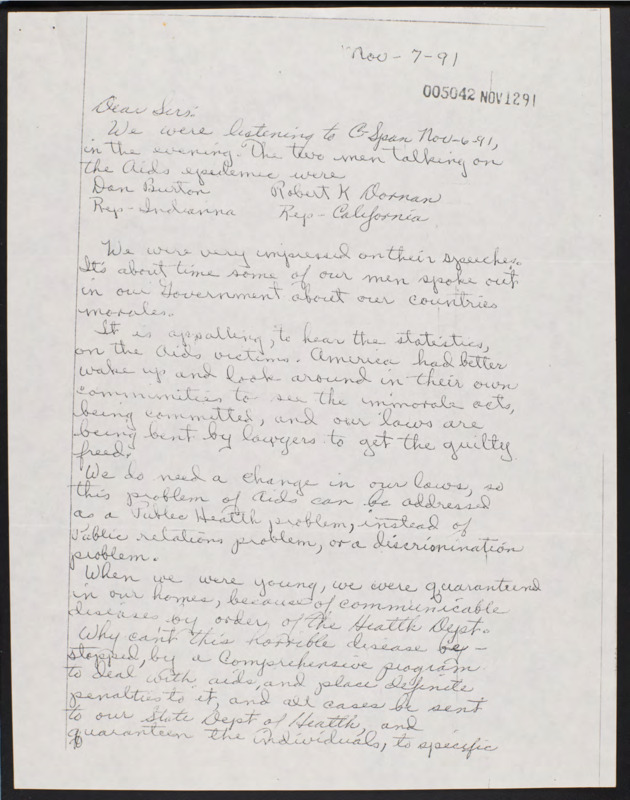 Nov-7-91
005042 NOV1291
Dear Sirs:
We were listening to C-Span Nov-6-91,
in the evening. The two men talking on
the Aids epedemic were
Dan Burton Robert K Dornan
Rep-Indianna Rep-California
We were very impressed on their speeches.
Its about time some of our men spoke out
in our Government about our countries
morales.
It is appalling, to hear the statistics,
on the Aids victims. America had better
wake up and look around in their own
communities to see the immorale acts,
being committed, and our laws are
being bent by lawyers to get the guilty
freed.
We do need a change in our laws, so
this problem of Aids can be addressed
as a Public Health problem, instead of
Public relations problem, or a discrimination
problem.
When we were young, we were quaranteend
in our homes, because of communicable
diseases by order of the Health Dept.
Why can't this horrible disease be-
stopped, by a Comprehensive program
to deal with aids, and place definite
penalties to it, and all cases be sent
to our State Dept of Health, and
quaranteen the individuals, to specific